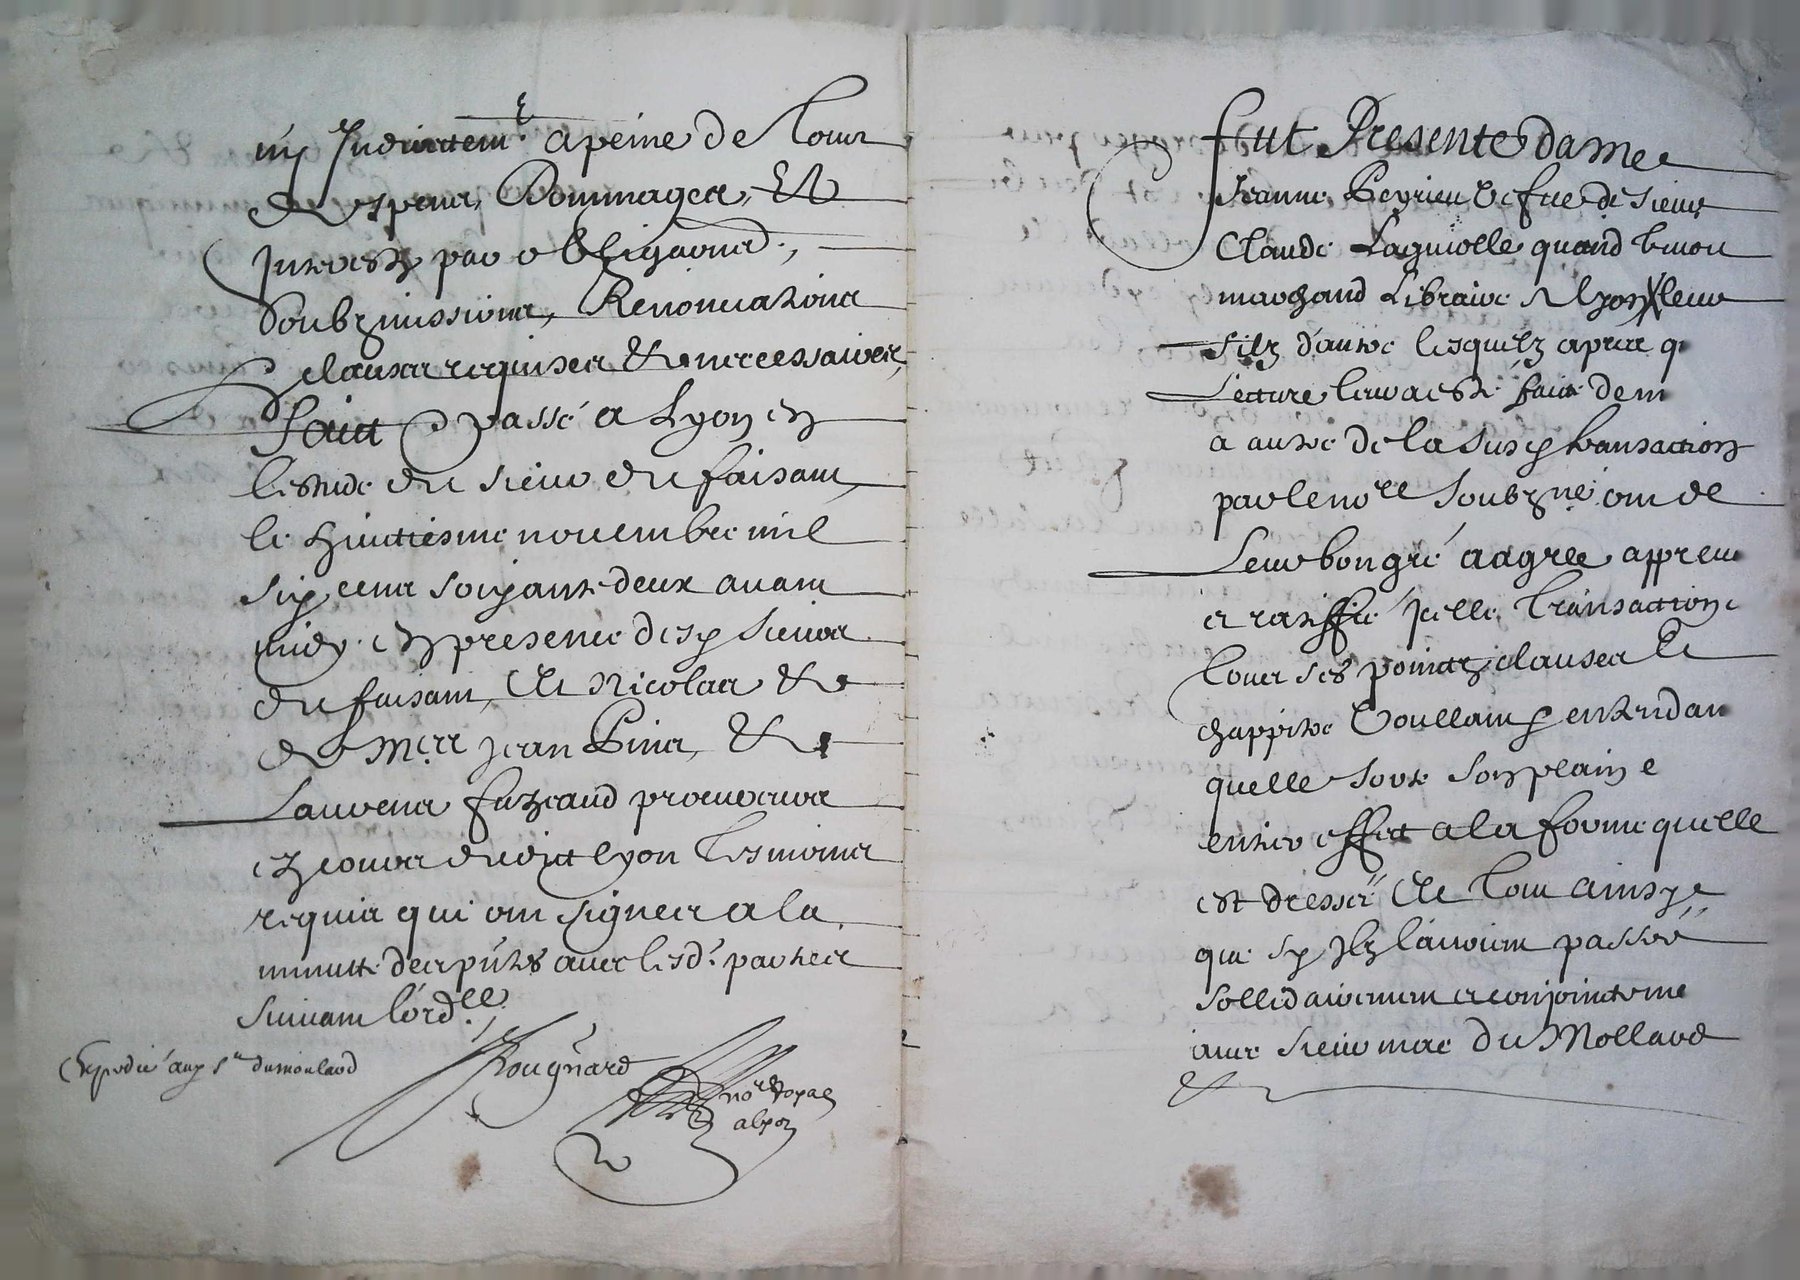 ny Indirectemt a peine de tous
despens, Dommages, Et
Interestz par obligaons,
Soubzmissions, Renonciations
clauses requises & necessaires,
Faict & passé a Lyon en
lestude du sieur du faisant
le huictiesme novembre mil
six cens soixante deux avant
midy en presence desd sieurs
du faisant, Et Nicolas &
de Mes Jean Pins, &
Laurens procureurs
ez cours dudict lyon tesmoins
requis qui ont signes a la
minutte des pntes avec lesd. parties
suivant l'ordce
Expedié aud Sr dumoulard
Rougnard
nore Royal
a lyon
fut Presente dame
Jeanne Peyrieu vefue de sieur
Claude quand vivoit
marchand Libraire a lyon leur
filz d'autre lesquelz apres q
Lecture leur a esté faicte de m
a autre de la susd transaction
par le nore soubzné ont de
Leur bon gré aagreé appreuv
et ratiffié Jcelle transaction
tous ses pointz clauses Et
chappitre voullant entendan
quelle sorte son plain e
entier effect a la forme quelle
est dressée Et tout ainsy
que sy Jlz lavoient passeé
sollidairement et conjointeme
avec sieur marc Du Mollard